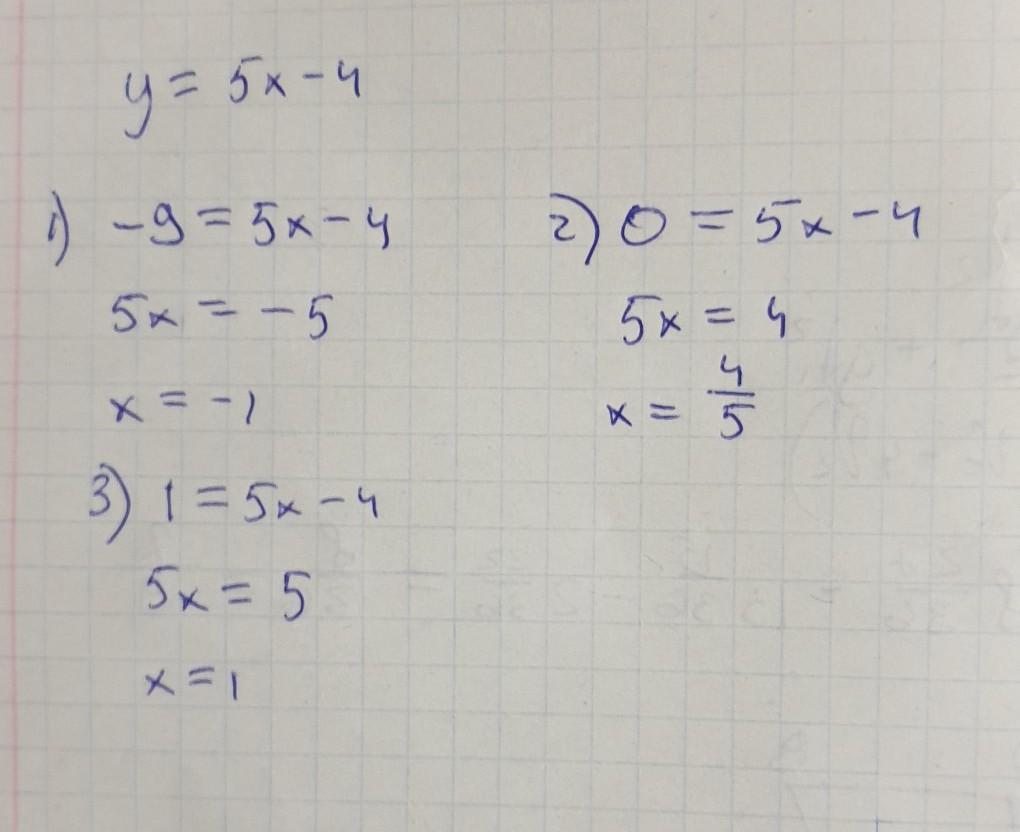 y = 5x - 4
1) -9 = 5x - 4
5x = -5
x = -1
2) 0 = 5x - 4
5x = 4
x = 4/5
3) 1 = 5x - 4
5x = 5
x = 1